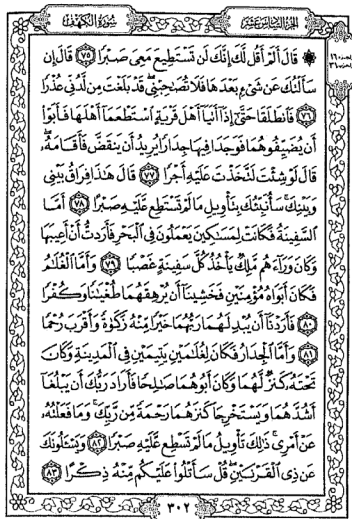 الجزء السادس عشر
سورة الكهف
۞ قَالَ أَلَمْ أَقُل لَّكَ إِنَّكَ لَن تَسْتَطِيعَ مَعِيَ صَبْرًا ٧٥ قَالَ إِن
سَأَلْتُكَ عَن شَيْءٍ بَعْدَهَا فَلَا تُصَاحِبْنِي قَدْ بَلَغْتَ مِن لَّدُنِّي عُذْرًا
٧٦ فَانطَلَقَا حَتَّىٰ إِذَا أَتَيَا أَهْلَ قَرْيَةٍ اسْتَطْعَمَا أَهْلَهَا فَأَبَوْا
أَن يُضَيِّفُوهُمَا فَوَجَدَا فِيهَا جِدَارًا يُرِيدُ أَن يَنقَضَّ فَأَقَامَهُ
قَالَ لَوْ شِئْتَ لَتَّخَذْتَ عَلَيْهِ أَجْرًا ٧٧ قَالَ هَٰذَا فِرَاقُ بَيْنِي
وَبَيْنِكَ سَأُنَبِّئُكَ بِتَأْوِيلِ مَا لَمْ تَسْتَطِع عَّلَيْهِ صَبْرًا ٧٨ أَمَّا
السَّفِينَةُ فَكَانَتْ لِمَسَاكِينَ يَعْمَلُونَ فِي الْبَحْرِ فَأَرَدتُّ أَنْ أَعِيبَهَا
وَكَانَ وَرَاءَهُم مَّلِكٌ يَأْخُذُ كُلَّ سَفِينَةٍ غَصْبًا ٧٩ وَأَمَّا الْغُلَامُ
فَكَانَ أَبَوَاهُ مُؤْمِنَيْنِ فَخَشِينَا أَن يُرْهِقَهُمَا طُغْيَانًا وَكُفْرًا
٨٠ فَأَرَدْنَا أَن يُبْدِلَهُمَا رَبُّهُمَا خَيْرًا مِّنْهُ زَكَاةً وَأَقْرَبَ رُحْمًا
٨١ وَأَمَّا الْجِدَارُ فَكَانَ لِغُلَامَيْنِ يَتِيمَيْنِ فِي الْمَدِينَةِ وَكَانَ
تَحْتَهُ كَنزٌ لَّهُمَا وَكَانَ أَبُوهُمَا صَالِحًا فَأَرَادَ رَبُّكَ أَن يَبْلُغَا
أَشُدَّهُمَا وَيَسْتَخْرِجَا كَنزَهُمَا رَحْمَةً مِّن رَّبِّكَ وَمَا فَعَلْتُهُ
عَنْ أَمْرِي ذَٰلِكَ تَأْوِيلُ مَا لَمْ تَسْطِع عَّلَيْهِ صَبْرًا ٨٢ وَيَسْأَلُونَكَ
عَن ذِي الْقَرْنَيْنِ قُلْ سَأَتْلُو عَلَيْكُم مِّنْهُ ذِكْرًا ٨٣
٣٠٢